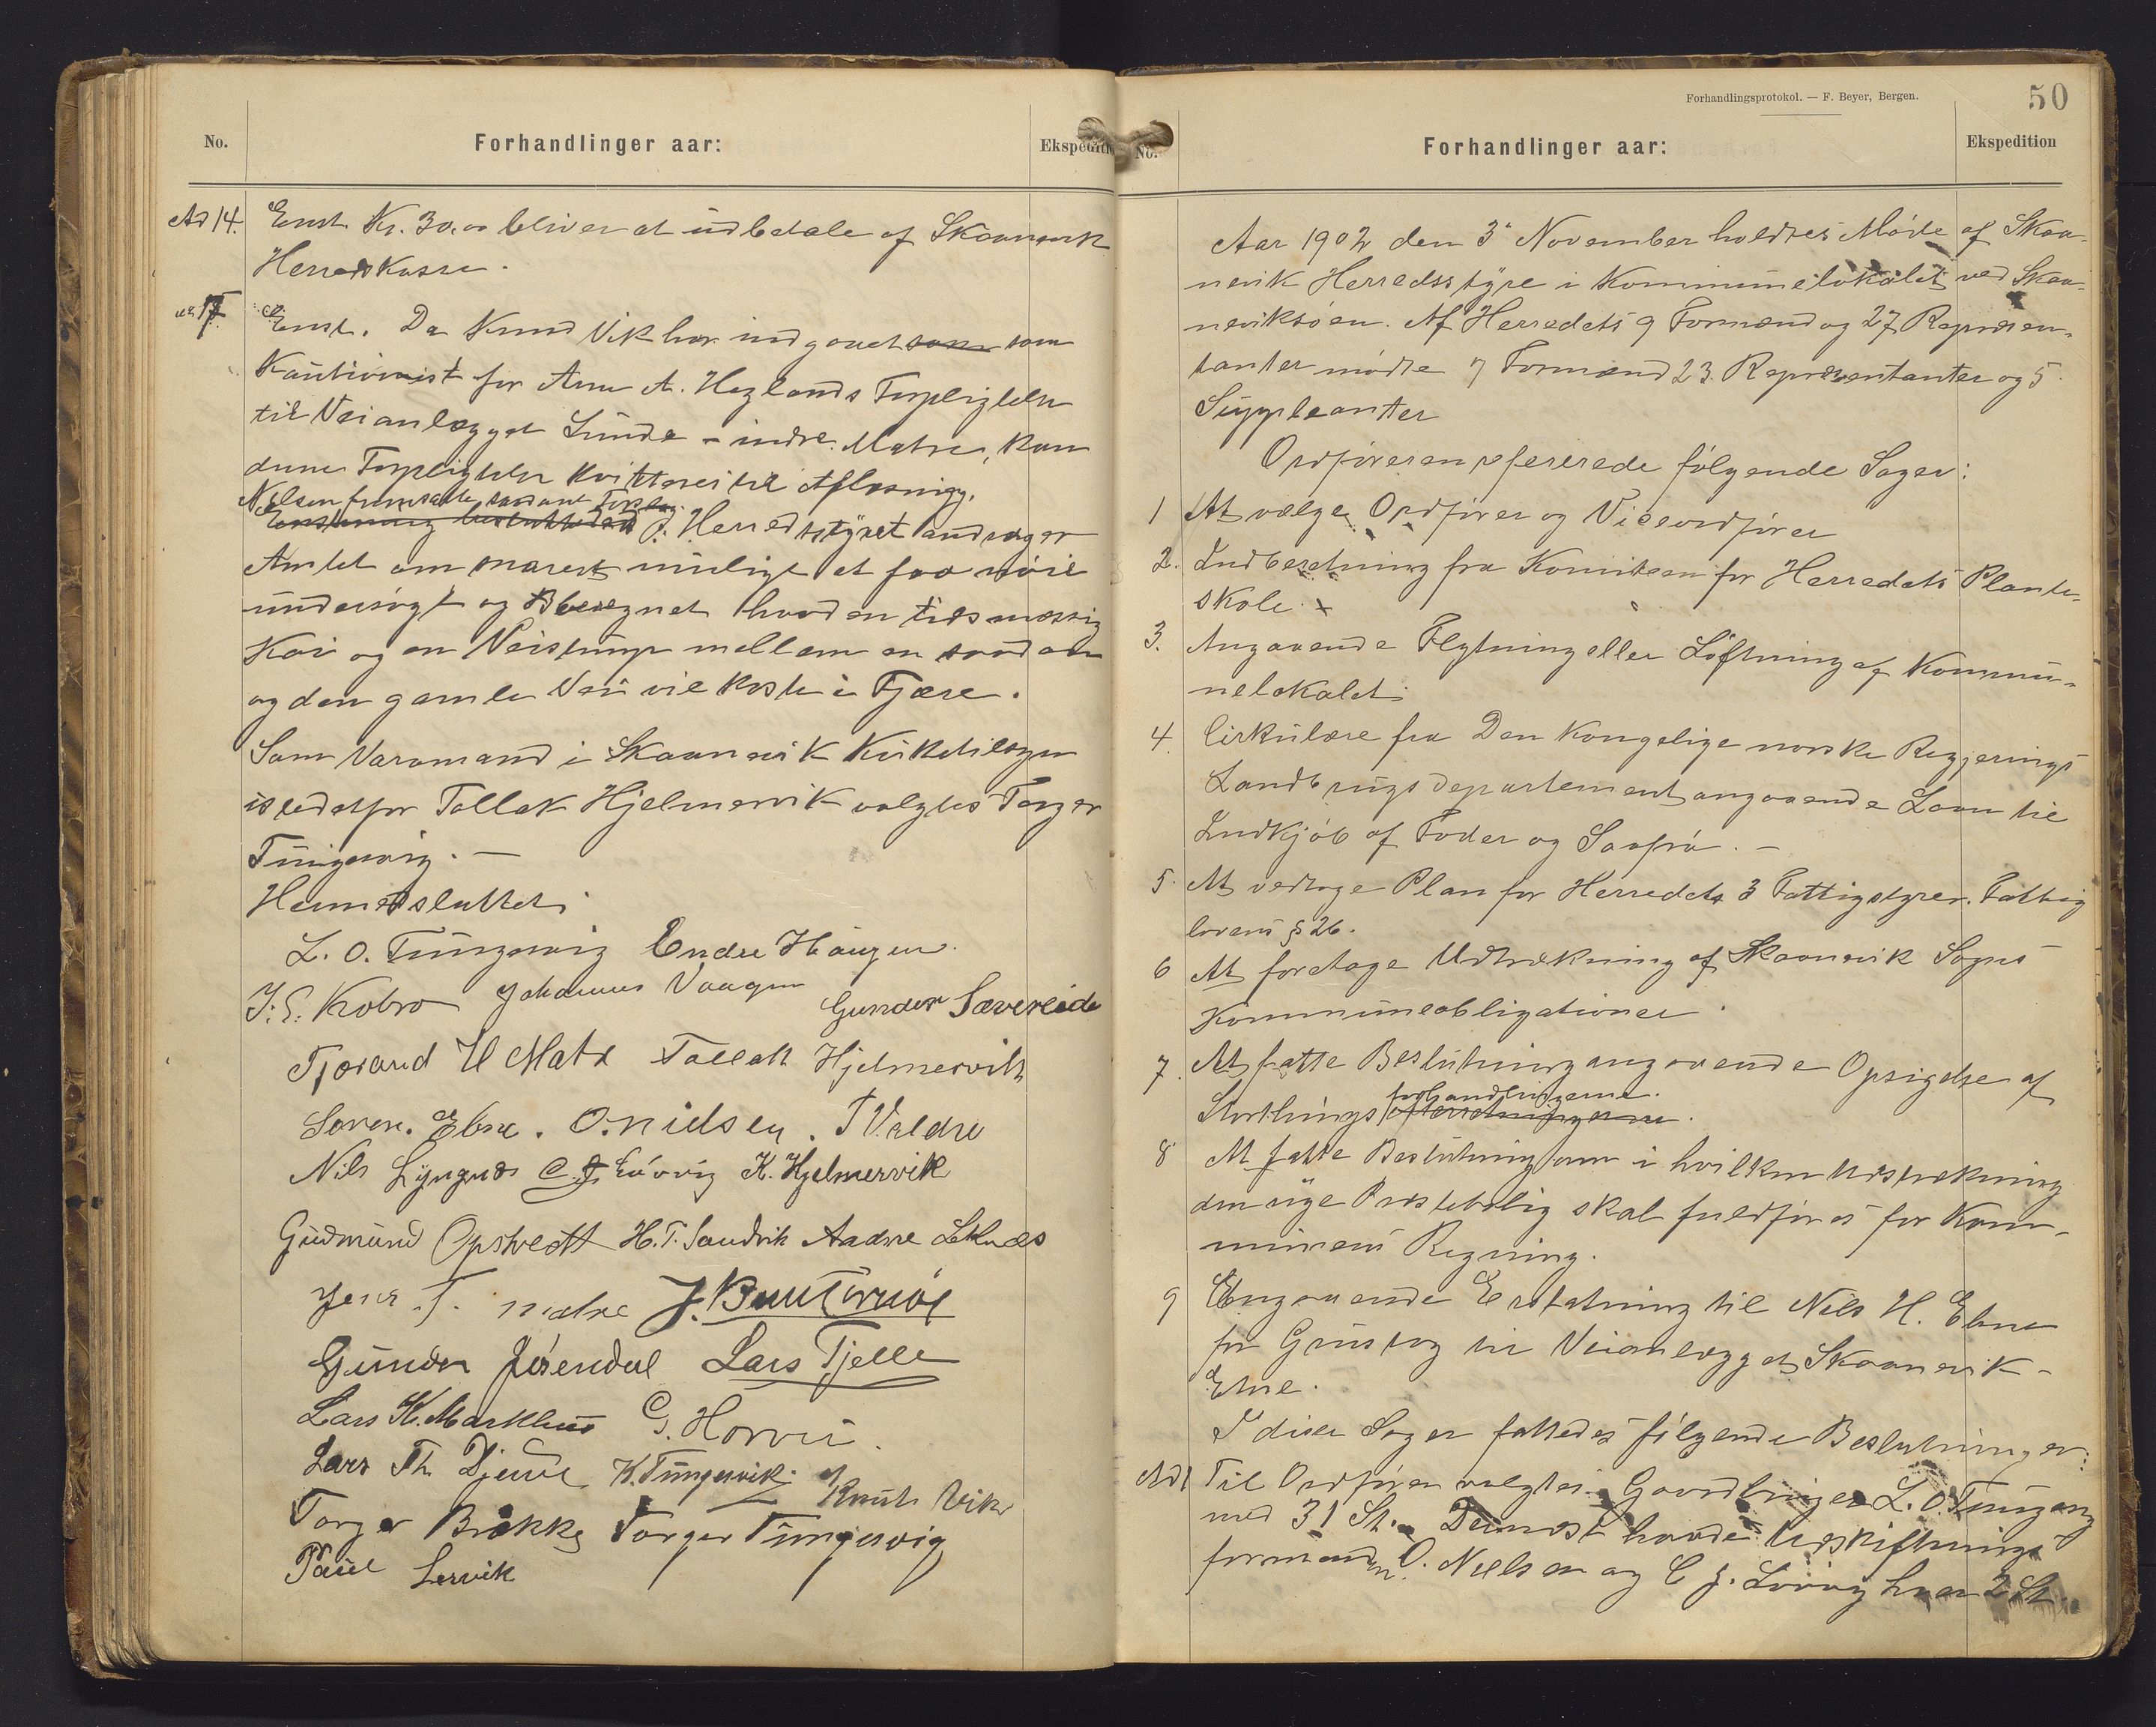 No.
Forhandlinger aar:
Ekspedition
Ad 14. Enst. Kr. 30,00 bliver at udbetale af Skaanevik
Herredskasse.
ad 17. Enst. Da Knud Vik har indgaaet som som
Kautionist for Arne A. Heglands Forpligtelse
til Veianlægget Sunde - indre Matre, kan
denne Forpligtelse kvitteres til Aflæsning.
Nielsen fremsatte saadant Forslag:
Enstemmig besluttedes
Herredsstyret andrager
Amtet om snarest muligt at faa nöie
undersögt og Beregnet hvad en tidsmæssig
Kai og en Veistump mellem en saadan
og den gamle Vei vil koste i Fjære.
Som Varamand i Skaanevik Kirketilsyn
istedetfor Tollak Hjelmervik valgtes Torger
Tungesvig. —
Hermed sluttet.
L. O. Tungesvig Endre Haugen
J. E. Kobro Johannes Vaagen
Gunder Sævereide
Tjerand H Matre Tollak Hjelmervik
Soren. Ebne. O. Nielsen. T Valdre
Nils Lyngnes C. J. Lövvig K. Hjelmervik
Gudmund Opstvedt H. T. Sandvik Aadne Leknes
Jens. T. matre J. Bent Tornöe
Gunder Jösendal Lars Tjelle
Lars K. Markhus G. Horvei.
Lars Th. K. Tungesvik.
Knut Vik
Torger Brekke Torger Tungesvig
Paul Lervik
Forhandlingsprotokol. — F. Beyer, Bergen.
50
No.
Forhandlinger aar:
Ekspedition
Aar 1902 den 3' November holdtes Möde af Skaa-
nevik Herredsstyre i Kommunelokalet ved Skaa-
neviksöen. Af Herredets 9 Formænd og 27 Repræsen-
tanter mödte 7 Formænd 23. Repræsentanter og 5.
Suppleanter
Ordföreren refererede fölgende Sager:
1 At vælge Ordförer og Viceordförer
2. Indberetning fra Komiteen for Herredets Plante-
skole. x
3. Angaaende Flytning eller Löftning af Kommu-
nelokalet.
4. Cirkulære fra Den kongelige norske Regjerings
Landbrugsdepartement angaaende Laan til
Indkjöb af Foder og Saafrö. —
5. At vedtage Plan for Herredets 3 Fattigstyrer. Fattig
lovens § 26.
6 At foretage Udtrækning af Skaanevik Sogns
Kommuneobligationer.
7. At fatte Beslutning angaaende Opsigelse af
forhandlingerne.
Storthings efterretningerne.
8 At fatte Beslutning om i hvilken Udstrækning
den nye Prestebolig skal fuldföres for Kom-
munens Regning.
9 Angaaende Erstatning til Nils H. Ebne
for Grustag til Veianlægget Skaanevik-
Etne.
I disse Sager fattedes fölgende Beslutninger:
Ad 1 Til Ordförer valgtes Gaardbruger L. O. Tungesvig
med 31 St. Dernæst havde Udskiftnings-
formanden O. Nielsen og C J. Lövvig hver 2 St.